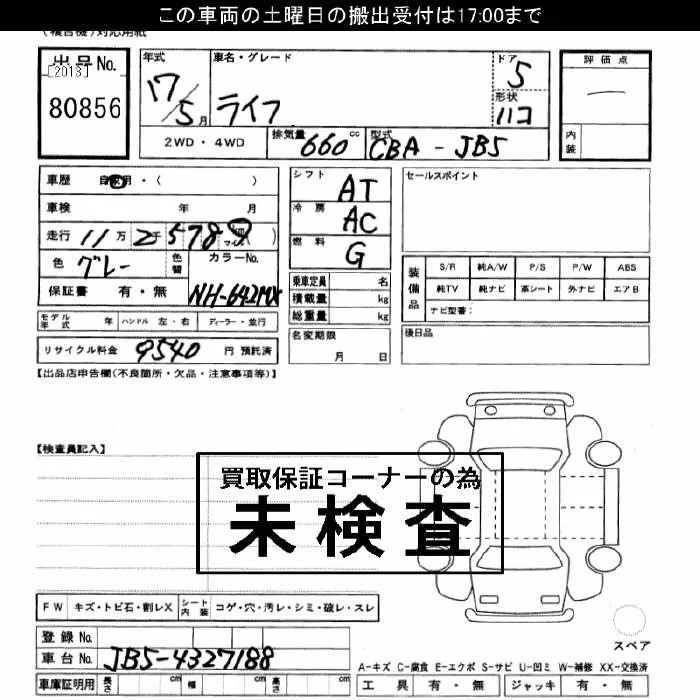 この車両の土曜日の搬出受付は17:00まで
(複合機)対応用紙
出品No. [2013] 80856
年式 17/5月
車名・グレード ライフ
ドア 5
形状 ハコ
評価点 ー
内装
2WD・4WD
排気量 660cc
型式 CBA-JB5
車歴 自家用・( )
車検 年 月
走行 11万2千578 km マイル( )
色 グレー 色替 カラーNo. NH-642MX
保証書 有・無
シフト AT
冷房 AC
燃料 G
乗車定員 名
積載量 kg
総重量 kg
セールスポイント
装備品
S/R 純A/W P/S P/W ABS
純TV 純ナビ 革シート 外ナビ エアB
ナビ型番:
モデル年式 年 ハンドル 左・右 ディーラー・並行
リサイクル料金 9540 円 預託済
名変期限 月 日
後日品
【出品店申告欄(不良箇所・欠品・注意事項等)】
【検査員記入】
買取保証コーナーの為
未検査
FW キズ・トビ石・割レX シート内装 コゲ・穴・汚レ・シミ・破レ・スレ
スペア
登録No.
車台No. JB5-4327188
A-キズ C-腐食 E-エクボ S-サビ U-凹ミ W-補修 XX-交換済
車庫証明用 長さ cm 幅 cm 高さ cm
工具 有・無 ジャッキ 有・無